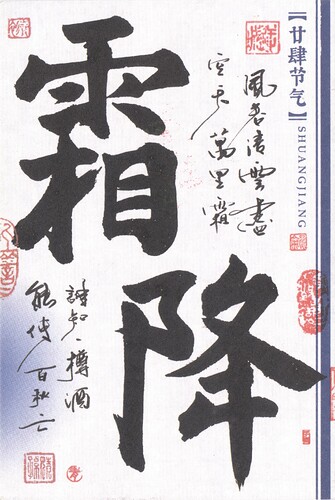 【廿肆节气】
SHUANGJIANG
霜降
風卷清雲盡
空天萬里霜
誰知一樽酒
能使百秋亡